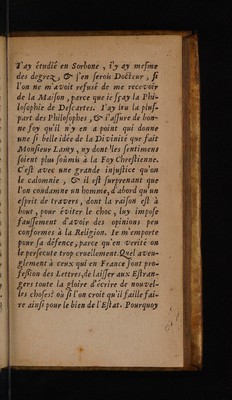 J'ay étudié en Sorbone, i'y ay mesme
des degrez, & j'en serois Docteur, si
l'on ne m'avoit refusé de me recevoir
de la Maison, parce que je sçay la Phi-
losophie de Descartes. J'ay leu la plus-
part des Philosophes, & i'assure de bon-
ne foy qu'il n'y en a point qui donne
une si belle idée de la Divinité que fait
Monsieur Lamy, ny dont les sentimens
soient plus soûmis à la Foy Chrestienne.
C'est avec une grande injustice qu'on
le calomnie, & il est surprenant que
l'on condamne un homme, d'abord qu'un
esprit de travers, dont la raison est à
bout, pour éviter le choc, luy impose
faussement d'avoir des opinions peu
conformes à la Religion. Je m'emporte
pour sa défence, parce qu'en verité on
le persecute trop cruellement. Quel aveu-
glement à ceux qui en France font pro-
fession des Lettres, de laisser aux Estran-
gers toute la gloire d'écrire de nouvel-
les choses? où si l'on croit qu'il faille fai-
re ainsi pour le bien de l'Estat. Pourquoy